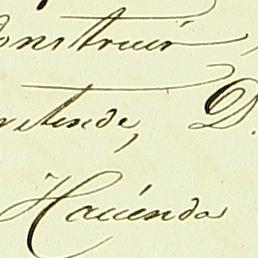 construir,
pretende, D.
Hacienda